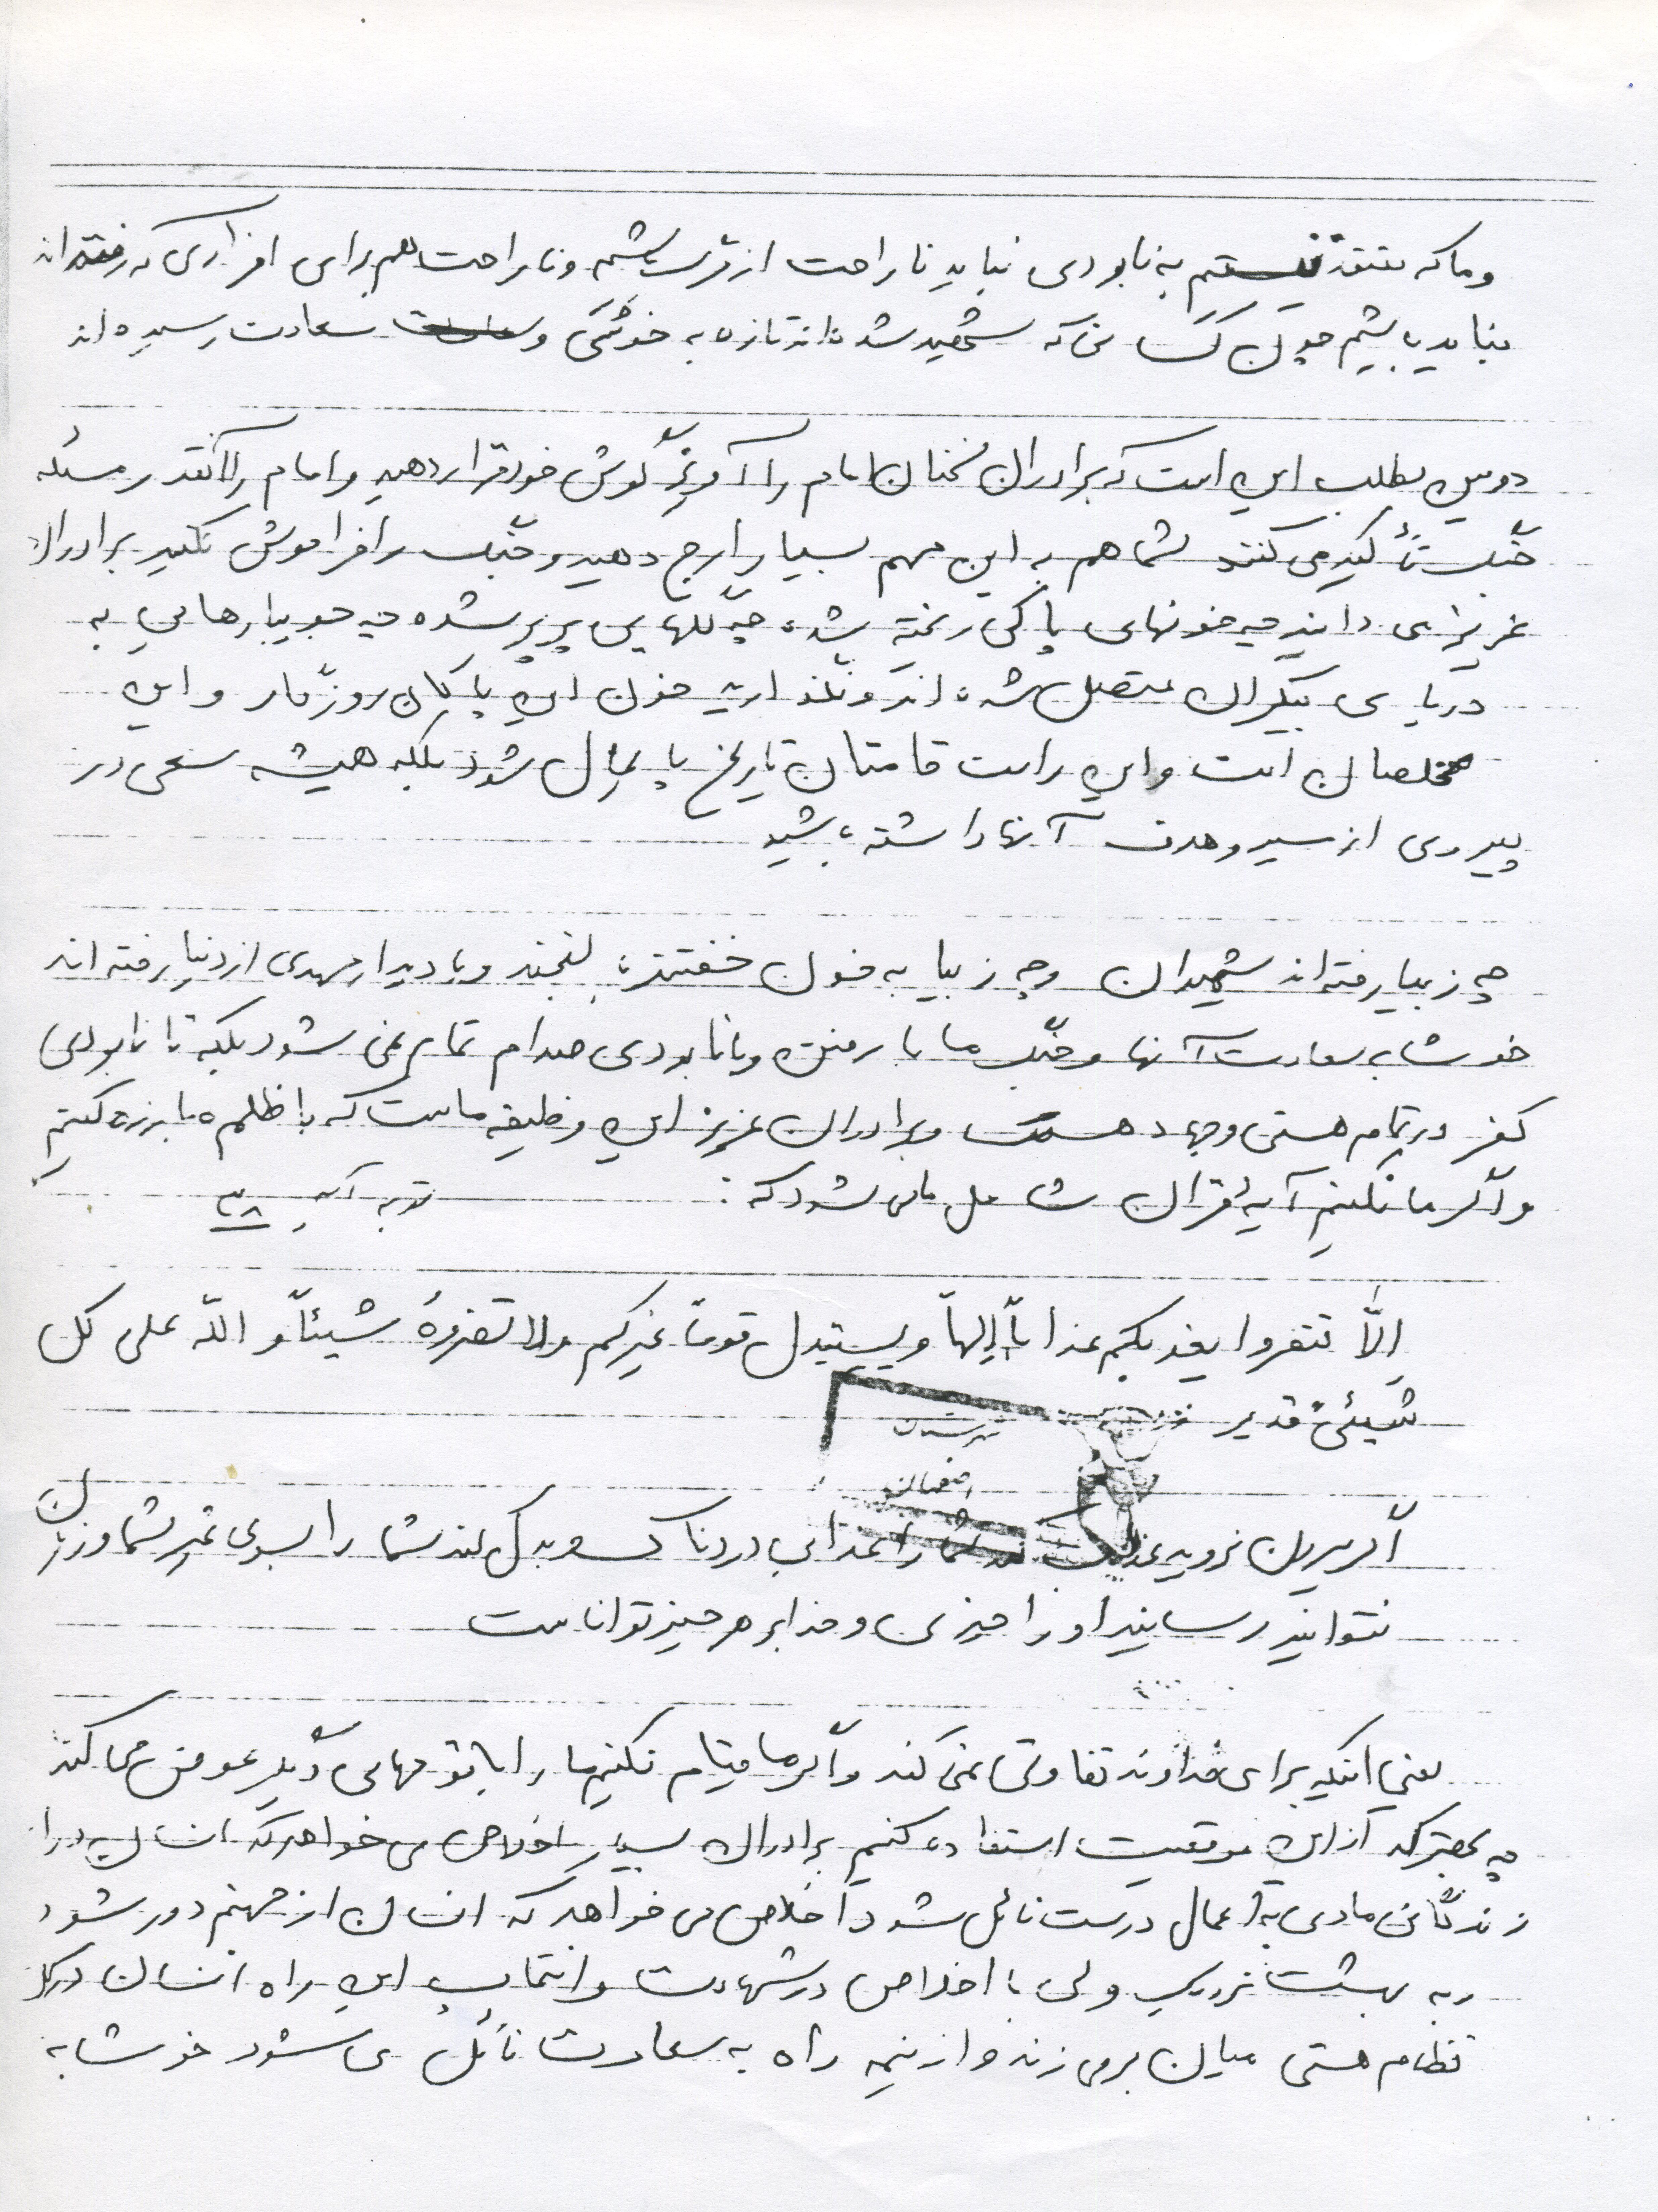 و ما که معتقد نیستیم به نابودی نباید ناراحت از مرگ باشیم و ناراحت هم برای افرادی که رفته‌اند
نباید باشیم چون کسانی که شهید شده‌اند تازه به خوشی و سعادت رسیده‌اند
دومین مطلب این است که برادران سخنان امام را آویزه گوش خود قرار دهید و امام را آنقدر مسئله
جنگ تأکید می کنند شما هم به این مهم بسیار ارج دهید و جنگ را فراموش نکنید برادران
عزیز می دانید چه خونهای پاکی ریخته شده چه گلهایی پرپر شده چه جویبارهایی به
دریای بیکران متصل شده اند و نگذارید خون این پاکان روزگار و این
مخلصان است و این راست قامتان تاریخ پایمال شود بلکه همیشه سعی در
پیروی از سیر و هدف آنها داشته باشید
چه زیبا رفته اند شهیدان وچه زیبا به خون خفتند با لبخند و با دیدار مهدی از دنیا رفته اند
خوشا به سعادت آنها و جنگ ما با رفتن و با نابودی صدام تمام نمی شود بلکه تا نابودی
کفر در تمام هستی وجهاد هست و برادران عزیز این وظیفه ماست که با ظلم مبارزه کنیم
و اگر ما نکنیم آیهٔ قرآن شامل ما می شود که : توبه آیه ۳۸
اِلّا تنفروا یعذبکم عذاباً الیماً و یستبدل قوماً غیرکم ولا تضروهُ شیئاً و اللّه علی کل
شیئیٍ قدیر
شهرستان
اصفهان
اگر بیرون نروید عذاب کند شما را عذابی دردناک و بدل کند شما را بسوی غیر شما و زیان
نتوانید رسانید او را چیزی و خدا بر هر چیز تواناست
یعنی اینکه برای خداوند تفاوتی نمی کند و اگر ما قیام نکنیم ما را با قومهایی دیگر عوض می کند
چه بهتر که از این موقعیت استفاده کنیم برادران بسیار اخلاص می خواهد که انسان در
زندگانی مادی به اعمال درست نائل شود اخلاص می خواهد که انسان از جهنم دور شود
و به بهشت نزدیک ولی با اخلاص در شهادت و انتخاب این راه انسان در کل
نظام هستی میان بر می زند و از نیمه راه به سعادت نائل می شود خوشا به